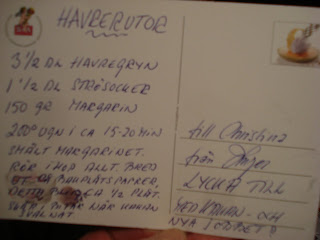 HAVRERUTOR
3 1/2 DL HAVREGRYN
1 1/2 DL STRÖSOCKER
150 gr MARGARIN
200° UGN I CA 15-20 MIN
SMÄLT MARGARINET.
RÖR I HOP ALLT. BRED
UT PÅ BAKPLÅTSPAPPER
1/2 PLÅT.
NÄR KAKAN
SVALNAT.
till Christina
från
LYCKA TILL
MED KAKAN - OCH
NYA JOBBET!